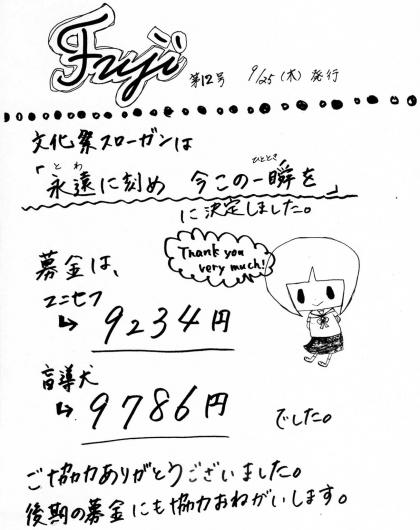 Fuji 第12号 9/25(木)発行
文化祭スローガンは
とわ ひととき
「永遠に刻め 今この一瞬を」
に決定しました。
Thank you
very much!
募金は、
ユニセフ
↳ 9234円
盲導犬
↳ 9786円 でした。
ご協力ありがとうございました。
後期の募金にも協力おねがいします。